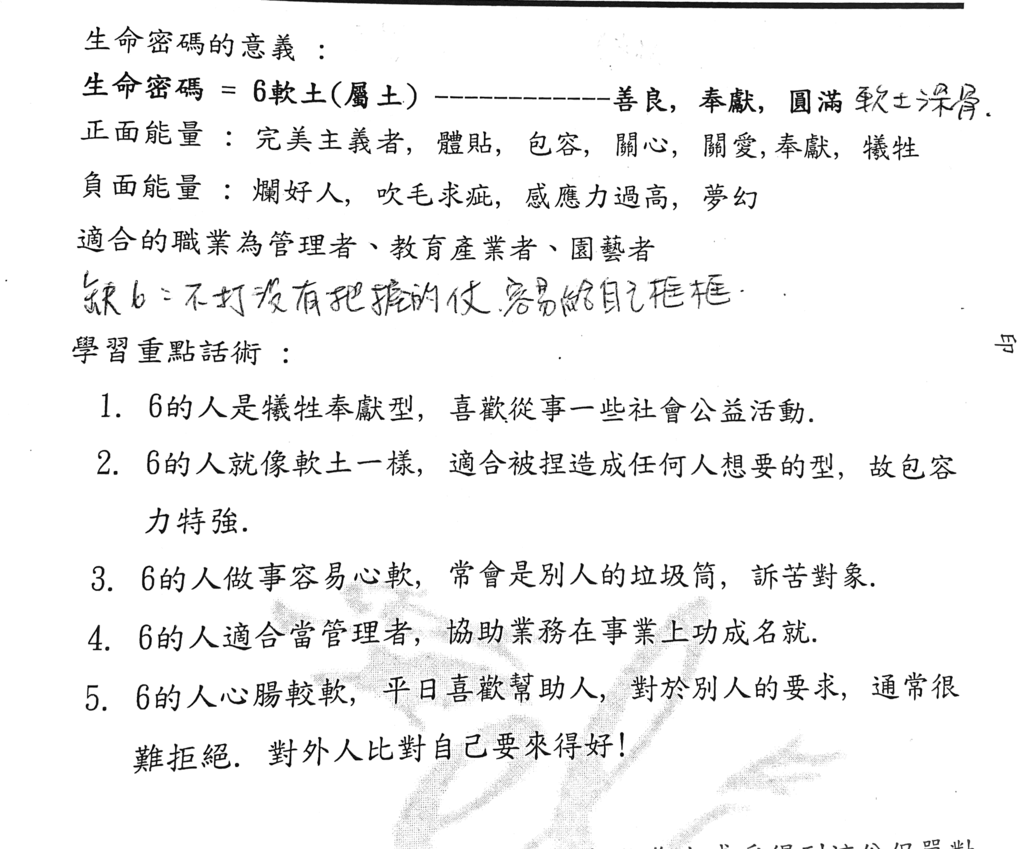 生命密碼的意義 :
生命密碼 = 6軟土(屬土) ------------善良, 奉獻, 圓滿 軟土深骨.
正面能量 : 完美主義者, 體貼, 包容, 關心, 關愛, 奉獻, 犧牲
負面能量 : 爛好人, 吹毛求疵, 感應力過高, 夢幻
適合的職業為管理者、教育產業者、園藝者
缺6:不打沒有把握的仗.容易給自己框框.
印
學習重點話術 :
1. 6的人是犧牲奉獻型, 喜歡從事一些社會公益活動.
2. 6的人就像軟土一樣, 適合被捏造成任何人想要的型, 故包容
力特強.
3. 6的人做事容易心軟, 常會是別人的垃圾筒, 訴苦對象.
4. 6的人適合當管理者, 協助業務在事業上功成名就.
5. 6的人心腸較軟, 平日喜歡幫助人, 對於別人的要求, 通常很
難拒絕. 對外人比對自己要來得好!